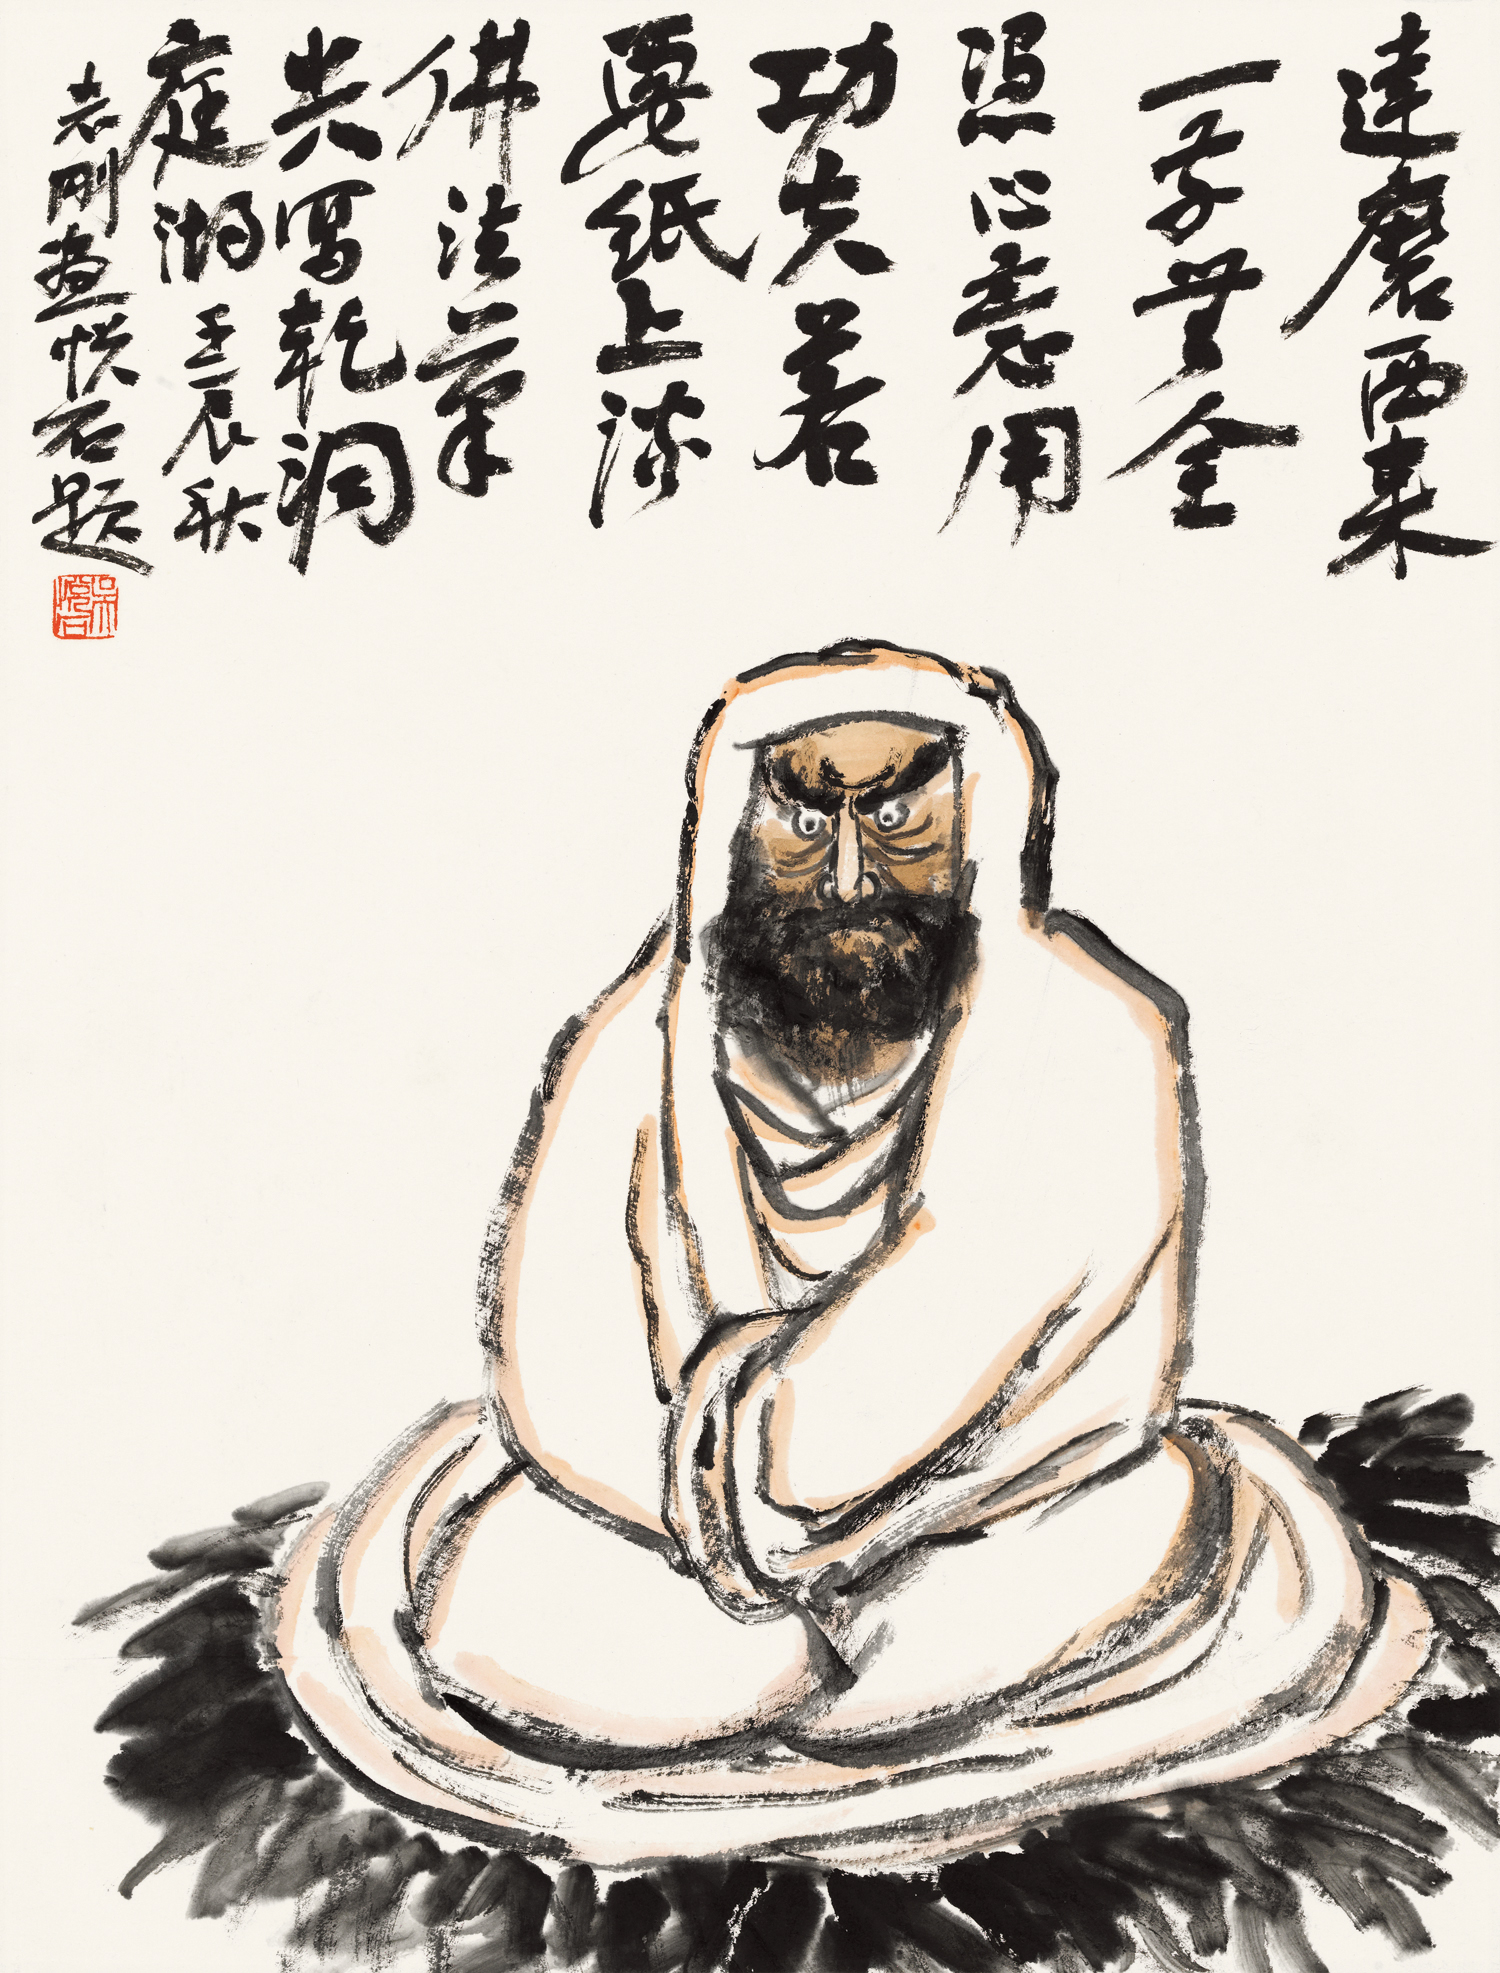 達磨西来
一字無全
憑心意用
功夫若
要紙上談
佛法筆
尖寫乾洞
庭湖壬辰秋
志剛畫悦石題
吴悦石